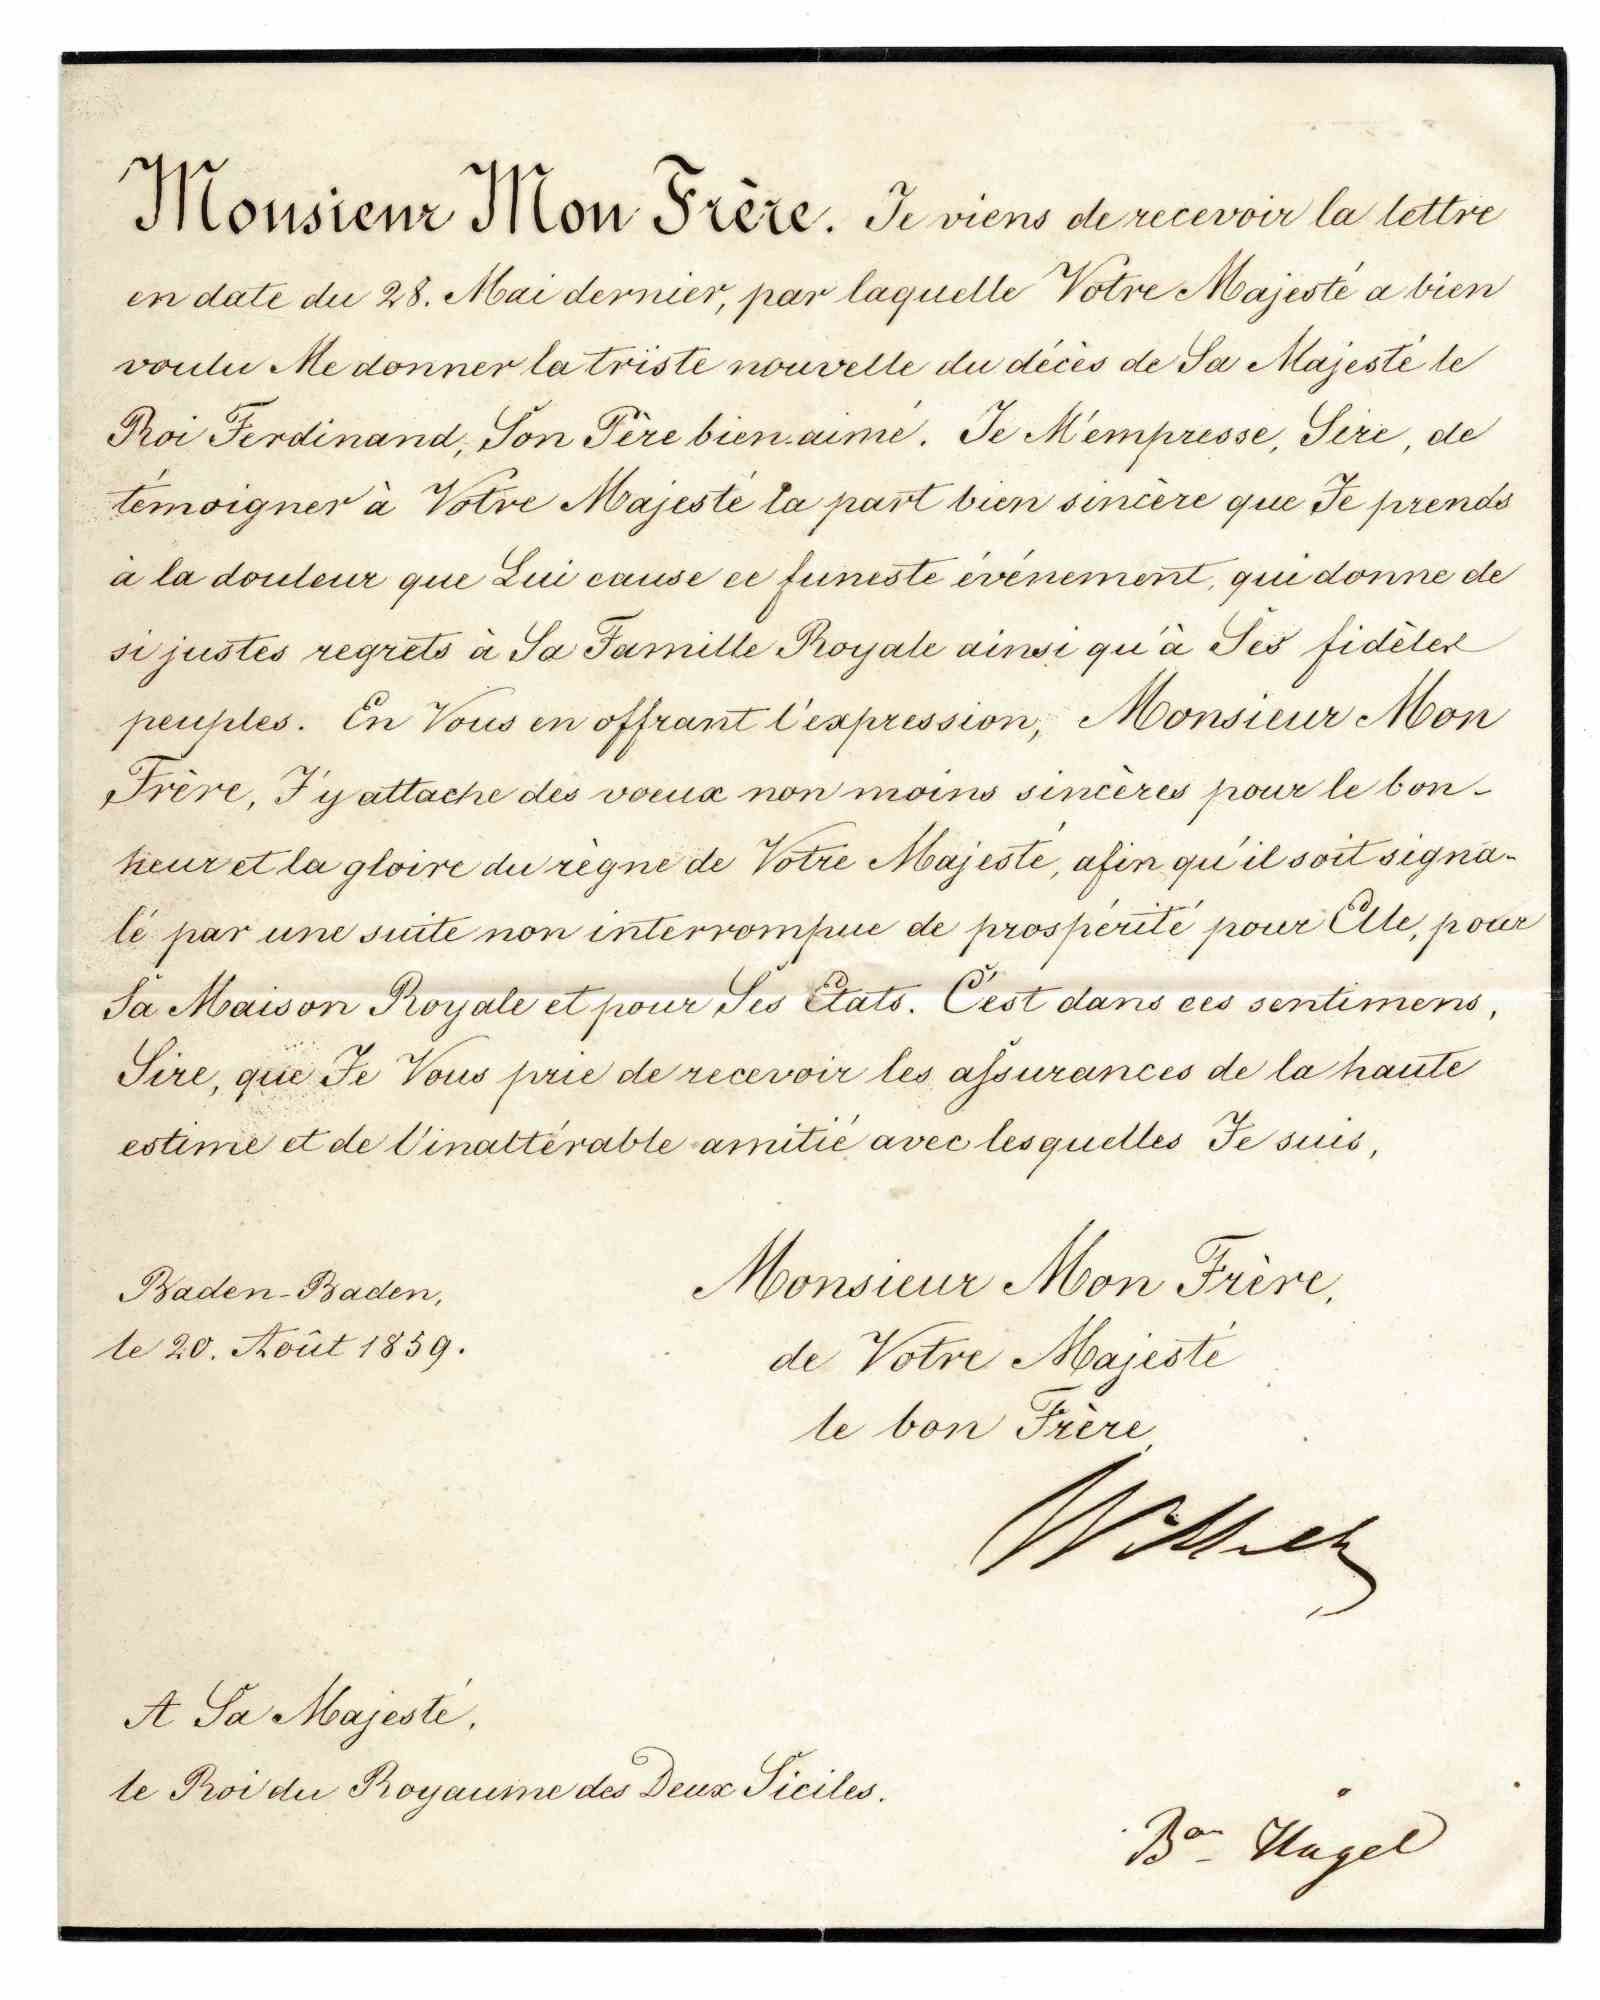 Monsieur Mon Frère. Je viens de recevoir la lettre
en date du 28. Mai dernier, par laquelle Votre Majesté a bien
voulu Me donner la triste nouvelle du décès de Sa Majesté le
Roi Ferdinand, Son Père bien-aimé. Je M'empresse, Sire, de
témoigner à Votre Majesté la part bien sincère que Je prends
à la douleur que Lui cause ce funeste événement, qui donne de
si justes regrets à Sa Famille Royale ainsi qu'à Ses fidèles
peuples. En Vous en offrant l'expression, Monsieur Mon
Frère, J'y attache des voeux non moins sincères pour le bon-
heur et la gloire du règne de Votre Majesté, afin qu'il soit signa-
lé par une suite non interrompue de prospérité pour Elle, pour
Sa Maison Royale et pour Ses Etats. C'est dans ces sentimens,
Sire, que Je Vous prie de recevoir les assurances de la haute
estime et de l'inaltérable amitié avec lesquelles Je suis,
Monsieur Mon Frère,
de Votre Majesté
le bon Frère
Baden-Baden,
le 20. Août 1859.
Wilhelm
A Sa Majesté,
le Roi du Royaume des Deux Siciles.
Bon Hügel